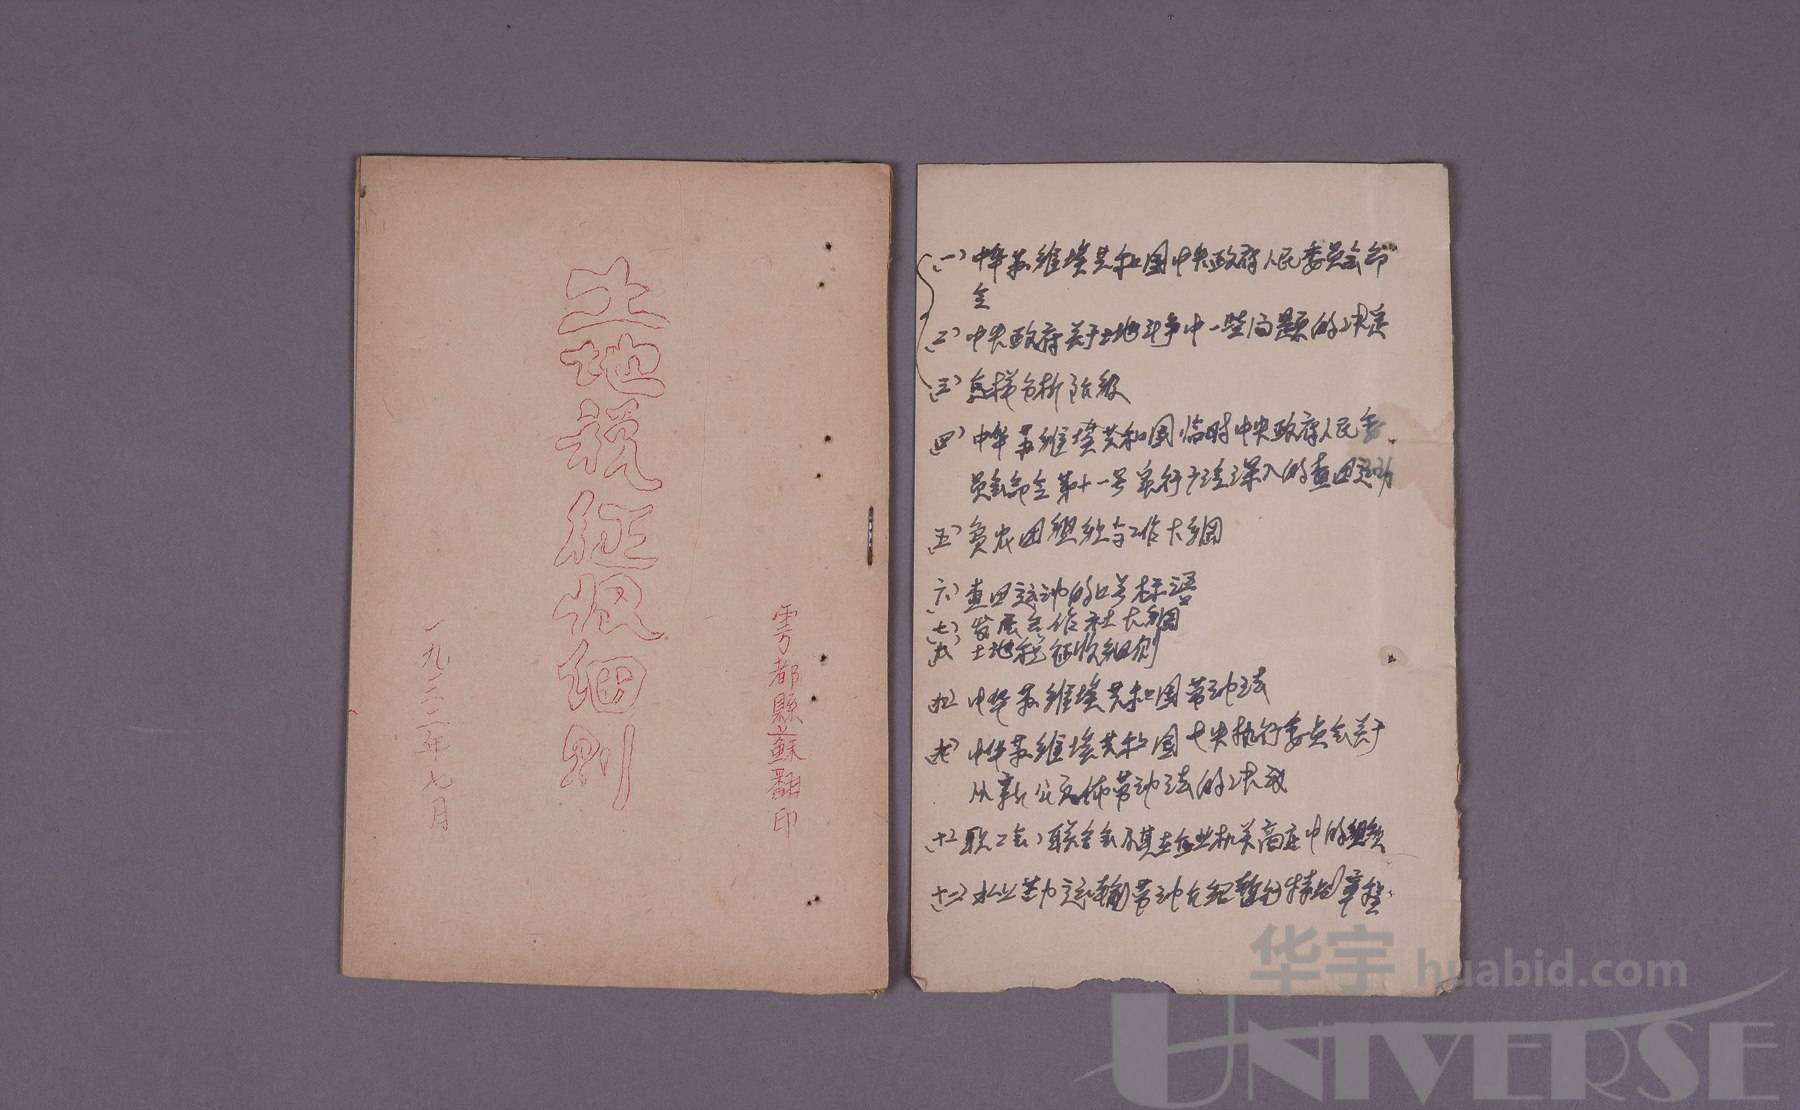 土地税征收细则
雩都縣蘇翻印
一九三三年七月
(一) 中华苏维埃共和国中央政府人民委员会命
令
(二) 中央政府关于土地斗争中一些问题的决定
(三) 怎样分析阶级
(四) 中华苏维埃共和国临时中央政府人民委
员会命令第十一号 实行广泛深入的查田运动
(五) 贫农团组织与工作大纲
(六) 查田运动的口号标语
(七) 发展合作社大纲
(八) 土地税征收细则
(九) 中华苏维埃共和国劳动法
(十) 中华苏维埃共和国中央执行委员会关于
从新公布劳动法的决议
(十一) 职工会联合会及其在企业机关商店中的组织
(十二) 苦力运输劳动介绍暂行章程
华宇 huabid.com
UNIVERSE